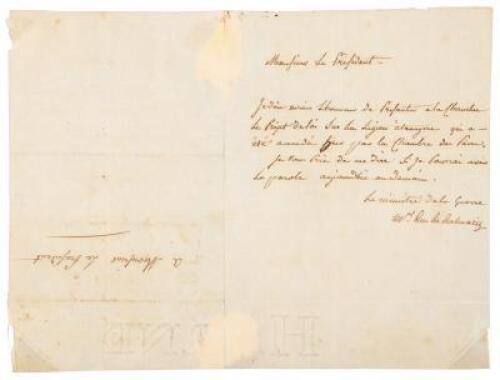 Monsieur Le President
Je dois avoir L'honneur de Presenter a la Chambre
le Projet de loi sur la Légion étrangère qui a
été amendé par la Chambre des Pairs.
je vous Prie de me Dire si je Pourrai avoir
la parole aujourd'hui ou demain.
Le ministre de la Guerre
M.al Duc de Dalmatie
A Monsieur
Le President